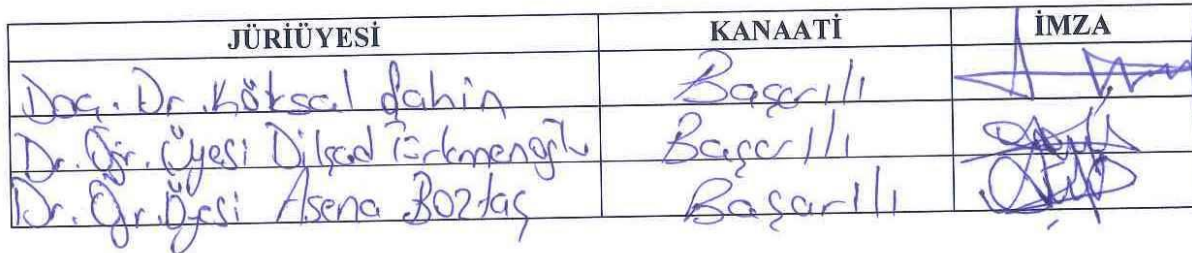 JÜRİÜYESİ KANAATİ İMZA
Doç. Dr. Köksal Şahin Başarılı
Dr. Öğr. Üyesi Dilşad Türkmenoğlu Başarılı
Dr. Öğr. Üyesi Asena Boztaş Başarılı